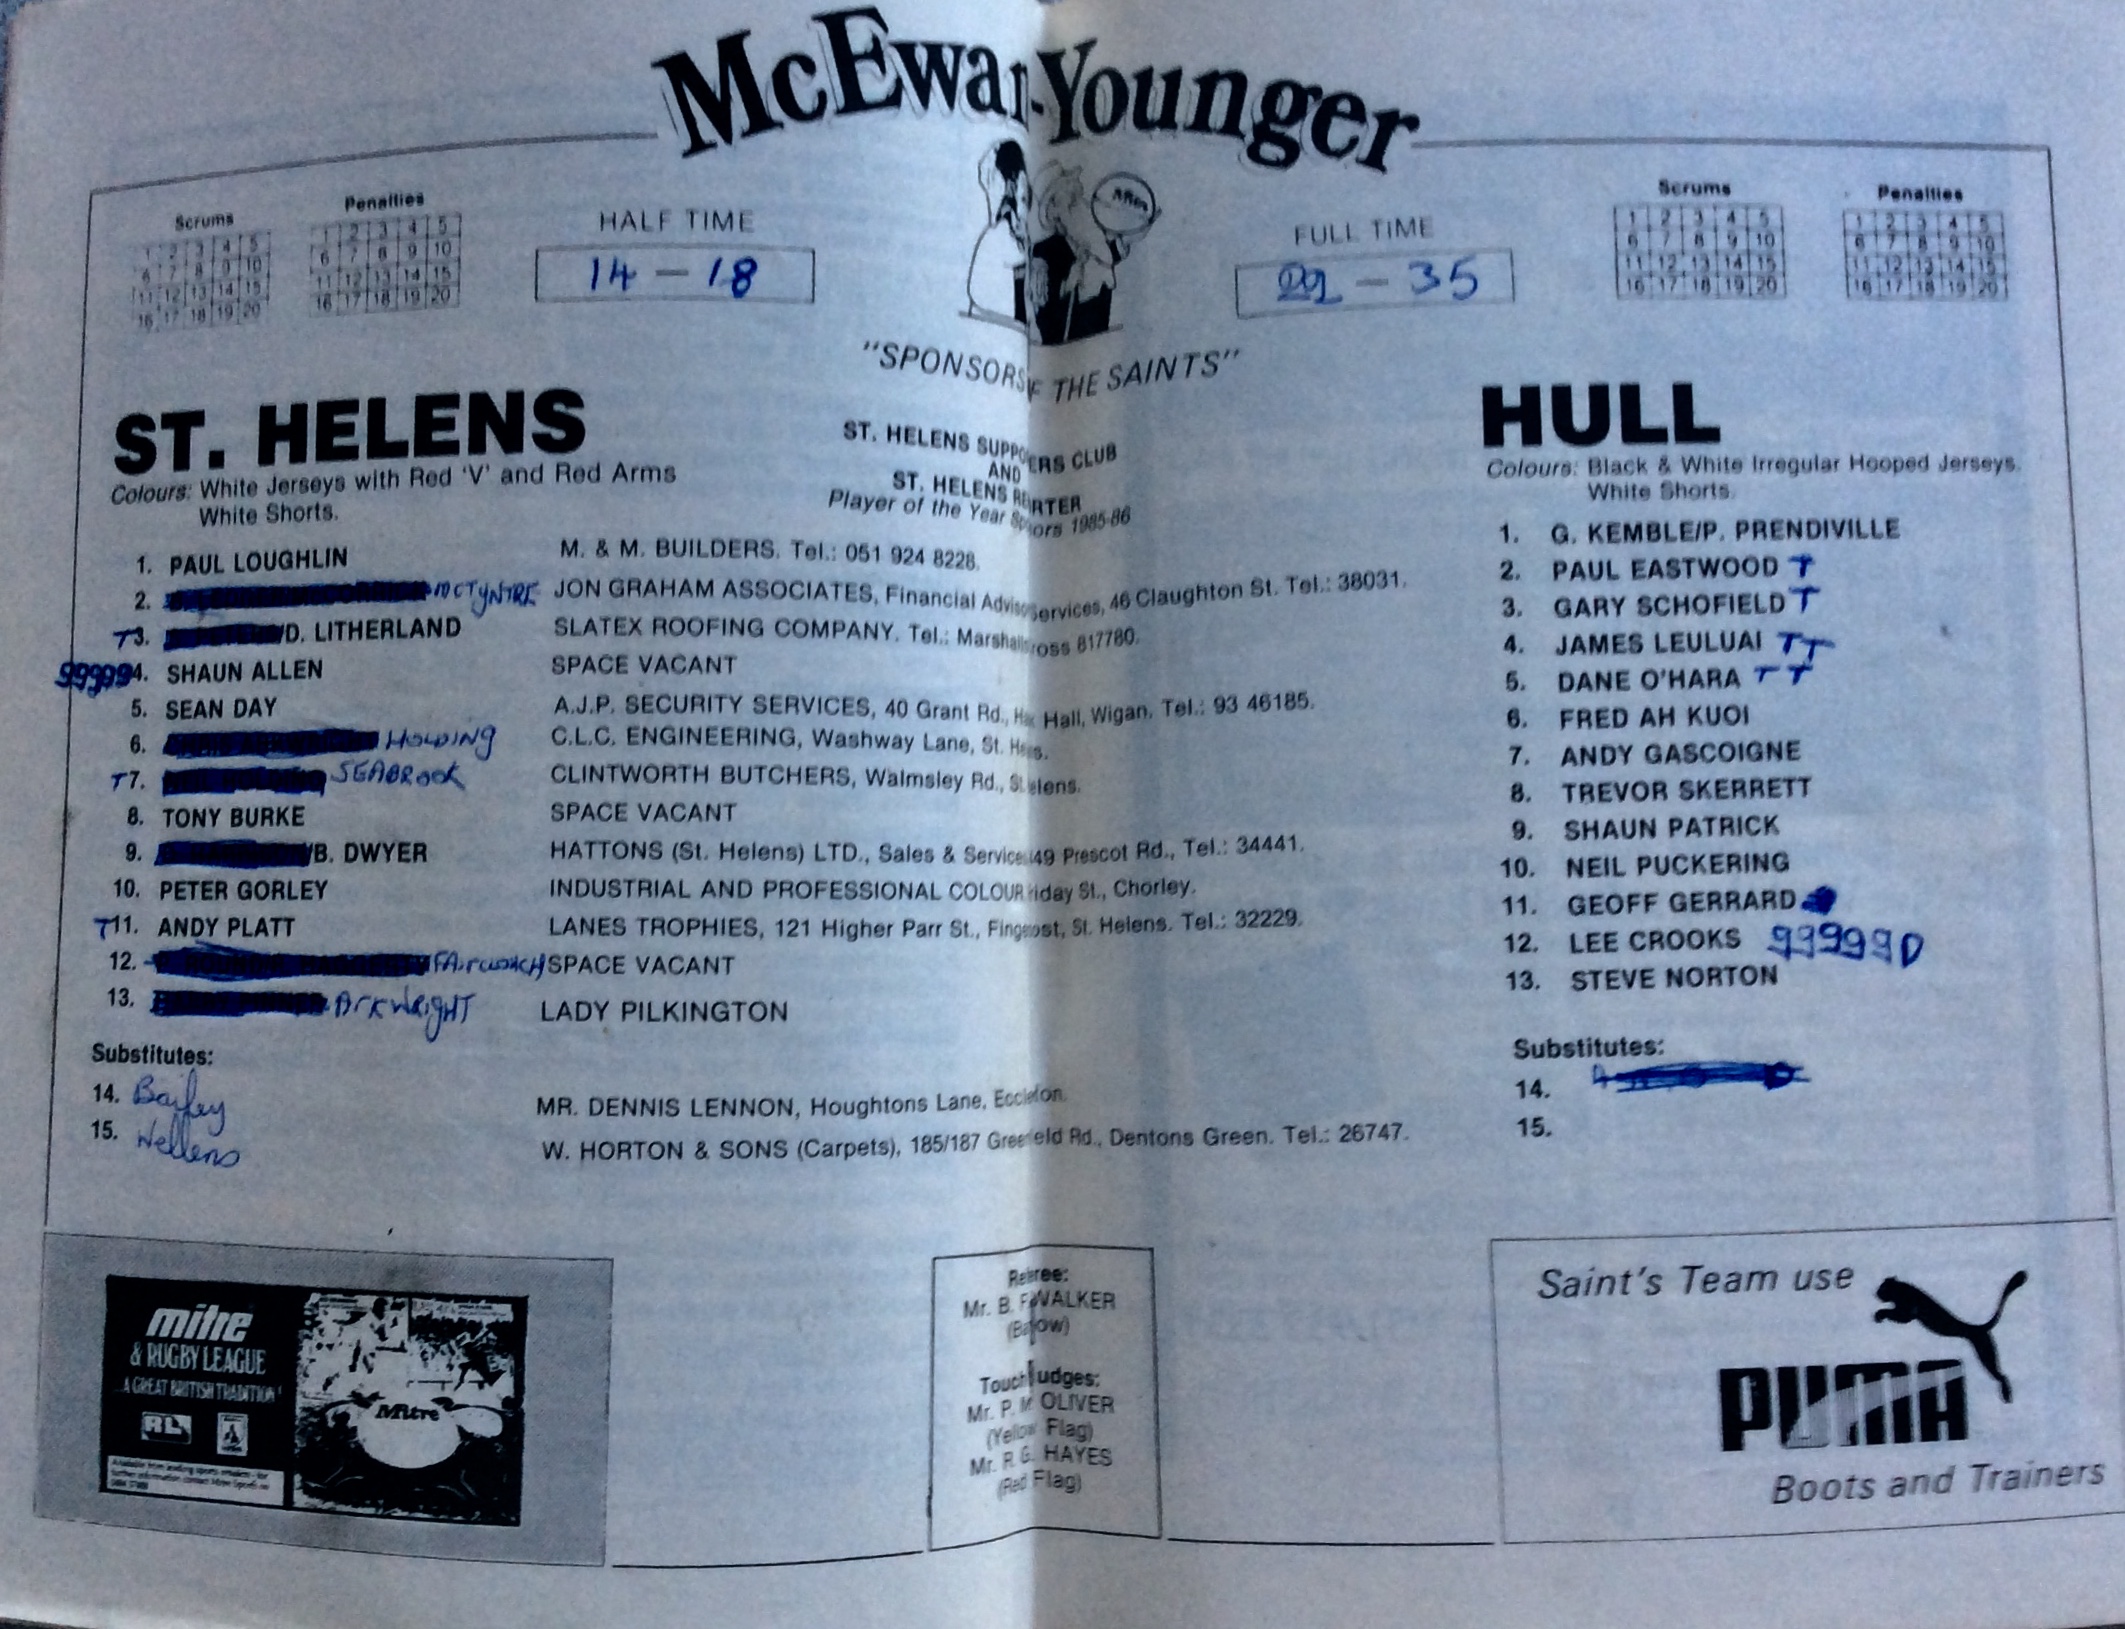 McEwan-Younger
Scrums
1 2 3 4 5
6 7 8 9 10
11 12 13 14 15
16 17 18 19 20
Penalties
1 2 3 4 5
6 7 8 9 10
11 12 13 14 15
16 17 18 19 20
HALF TIME
14 - 18
FULL TIME
22 - 35
Scrums
1 2 3 4 5
6 7 8 9 10
11 12 13 14 15
16 17 18 19 20
Penalties
1 2 3 4 5
6 7 8 9 10
11 12 13 14 15
16 17 18 19 20
"SPONSORS OF THE SAINTS"
ST. HELENS
Colours: White Jerseys with Red 'V' and Red Arms
White Shorts.
ST. HELENS SUPPORTERS CLUB
AND
ST. HELENS REPORTER
Player of the Year Sponsors 1985-86
1. PAUL LOUGHLIN M. & M. BUILDERS. Tel.: 051 924 8228.
2. McTyNTRE JON GRAHAM ASSOCIATES, Financial Services, 46 Claughton St. Tel.: 38031.
T 3. /D. LITHERLAND SLATEX ROOFING COMPANY. Tel.: Marshalls Cross 817780.
99999 4. SHAUN ALLEN SPACE VACANT
5. SEAN DAY A.J.P. SECURITY SERVICES, 40 Grant Rd., Hall, Wigan. Tel.: 93 46185.
6. HOLDING C.L.C. ENGINEERING, Washway Lane, St. Helens.
T 7. SEABROOK CLINTWORTH BUTCHERS, Walmsley Rd., St. Helens.
8. TONY BURKE SPACE VACANT
9. /B. DWYER HATTONS (St. Helens) LTD., Sales & Service, 49 Prescot Rd., Tel.: 34441.
10. PETER GORLEY INDUSTRIAL AND PROFESSIONAL COLOUR Friday St., Chorley.
T 11. ANDY PLATT LANES TROPHIES, 121 Higher Parr St., Fingerpost, St. Helens. Tel.: 32229.
12. SPACE VACANT
13. ArkWrigHT LADY PILKINGTON
Substitutes:
14. Bailey MR. DENNIS LENNON, Houghtons Lane, Eccleston.
15. Wellens W. HORTON & SONS (Carpets), 185/187 Greenfield Rd., Dentons Green. Tel.: 26747.
HULL
Colours: Black & White Irregular Hooped Jerseys.
White Shorts.
1. G. KEMBLE/P. PRENDIVILLE
2. PAUL EASTWOOD T
3. GARY SCHOFIELD T
4. JAMES LEULUAI T T
5. DANE O'HARA T T
6. FRED AH KUOI
7. ANDY GASCOIGNE
8. TREVOR SKERRETT
9. SHAUN PATRICK
10. NEIL PUCKERING
11. GEOFF GERRARD
12. LEE CROOKS 99999D
13. STEVE NORTON
Substitutes:
14.
15.
mitre
& RUGBY LEAGUE
A GREAT BRITISH TRADITION!
RL
Mitre
Referee:
Mr. B. WALKER
(Barrow)
Touch Judges:
Mr. P. M. OLIVER
(Yellow Flag)
Mr. R. G. HAYES
(Red Flag)
Saint's Team use
PUMA
Boots and Trainers